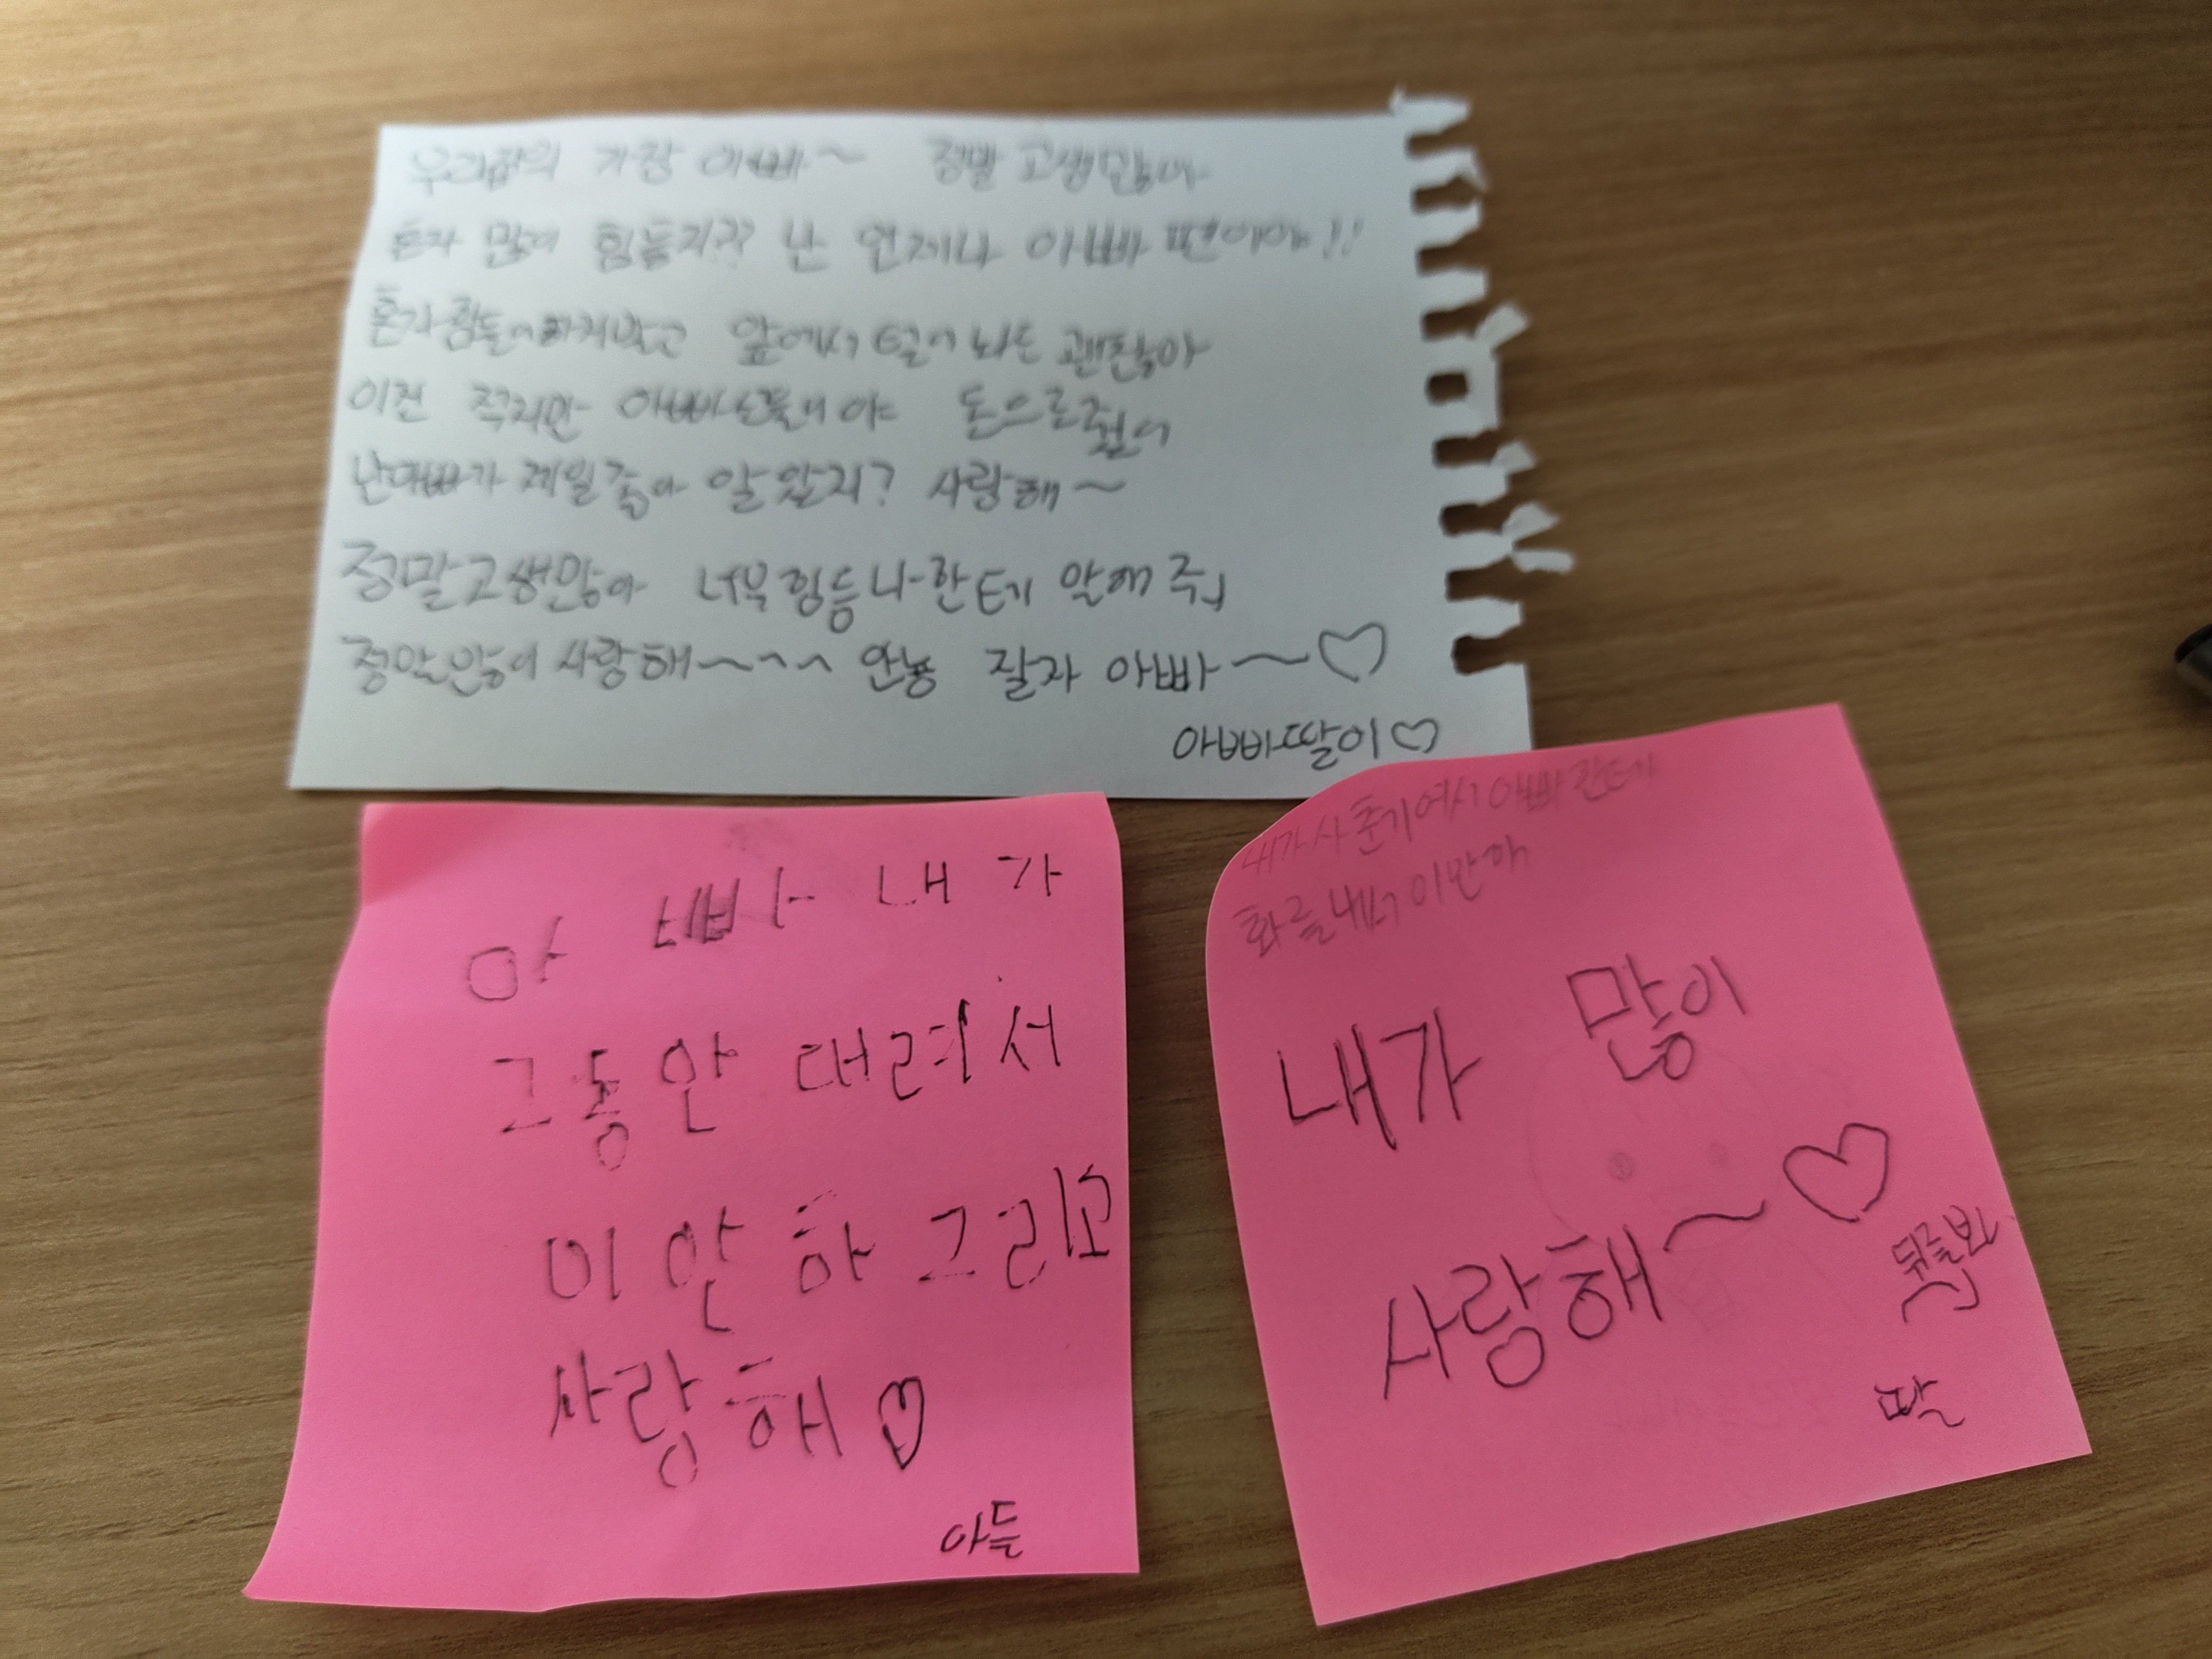 우리집의 가장 아빠~ 정말 고생많아
혼자 많이 힘들지?? 난 언제나 아빠 편이야!!
혼자힘들어하지말고 앞에서 털어놔도 괜찮아
이건 적지만 아빠선물이야 돈으로줬어
난아빠가 제일좋아 알았지? 사랑해~
정말고생많아 너무힘듬나한테 말해줘
정말많이사랑해~~~~ 안뇽 잘자 아빠~♡
아빠딸이♡
아빠 내가
그동안 대려서
미안하 그리고
사랑해♡
아들
내가사춘기여서아빠한테
화를내서미안해
내가 많이
사랑해~♡
뒤를봐
딸